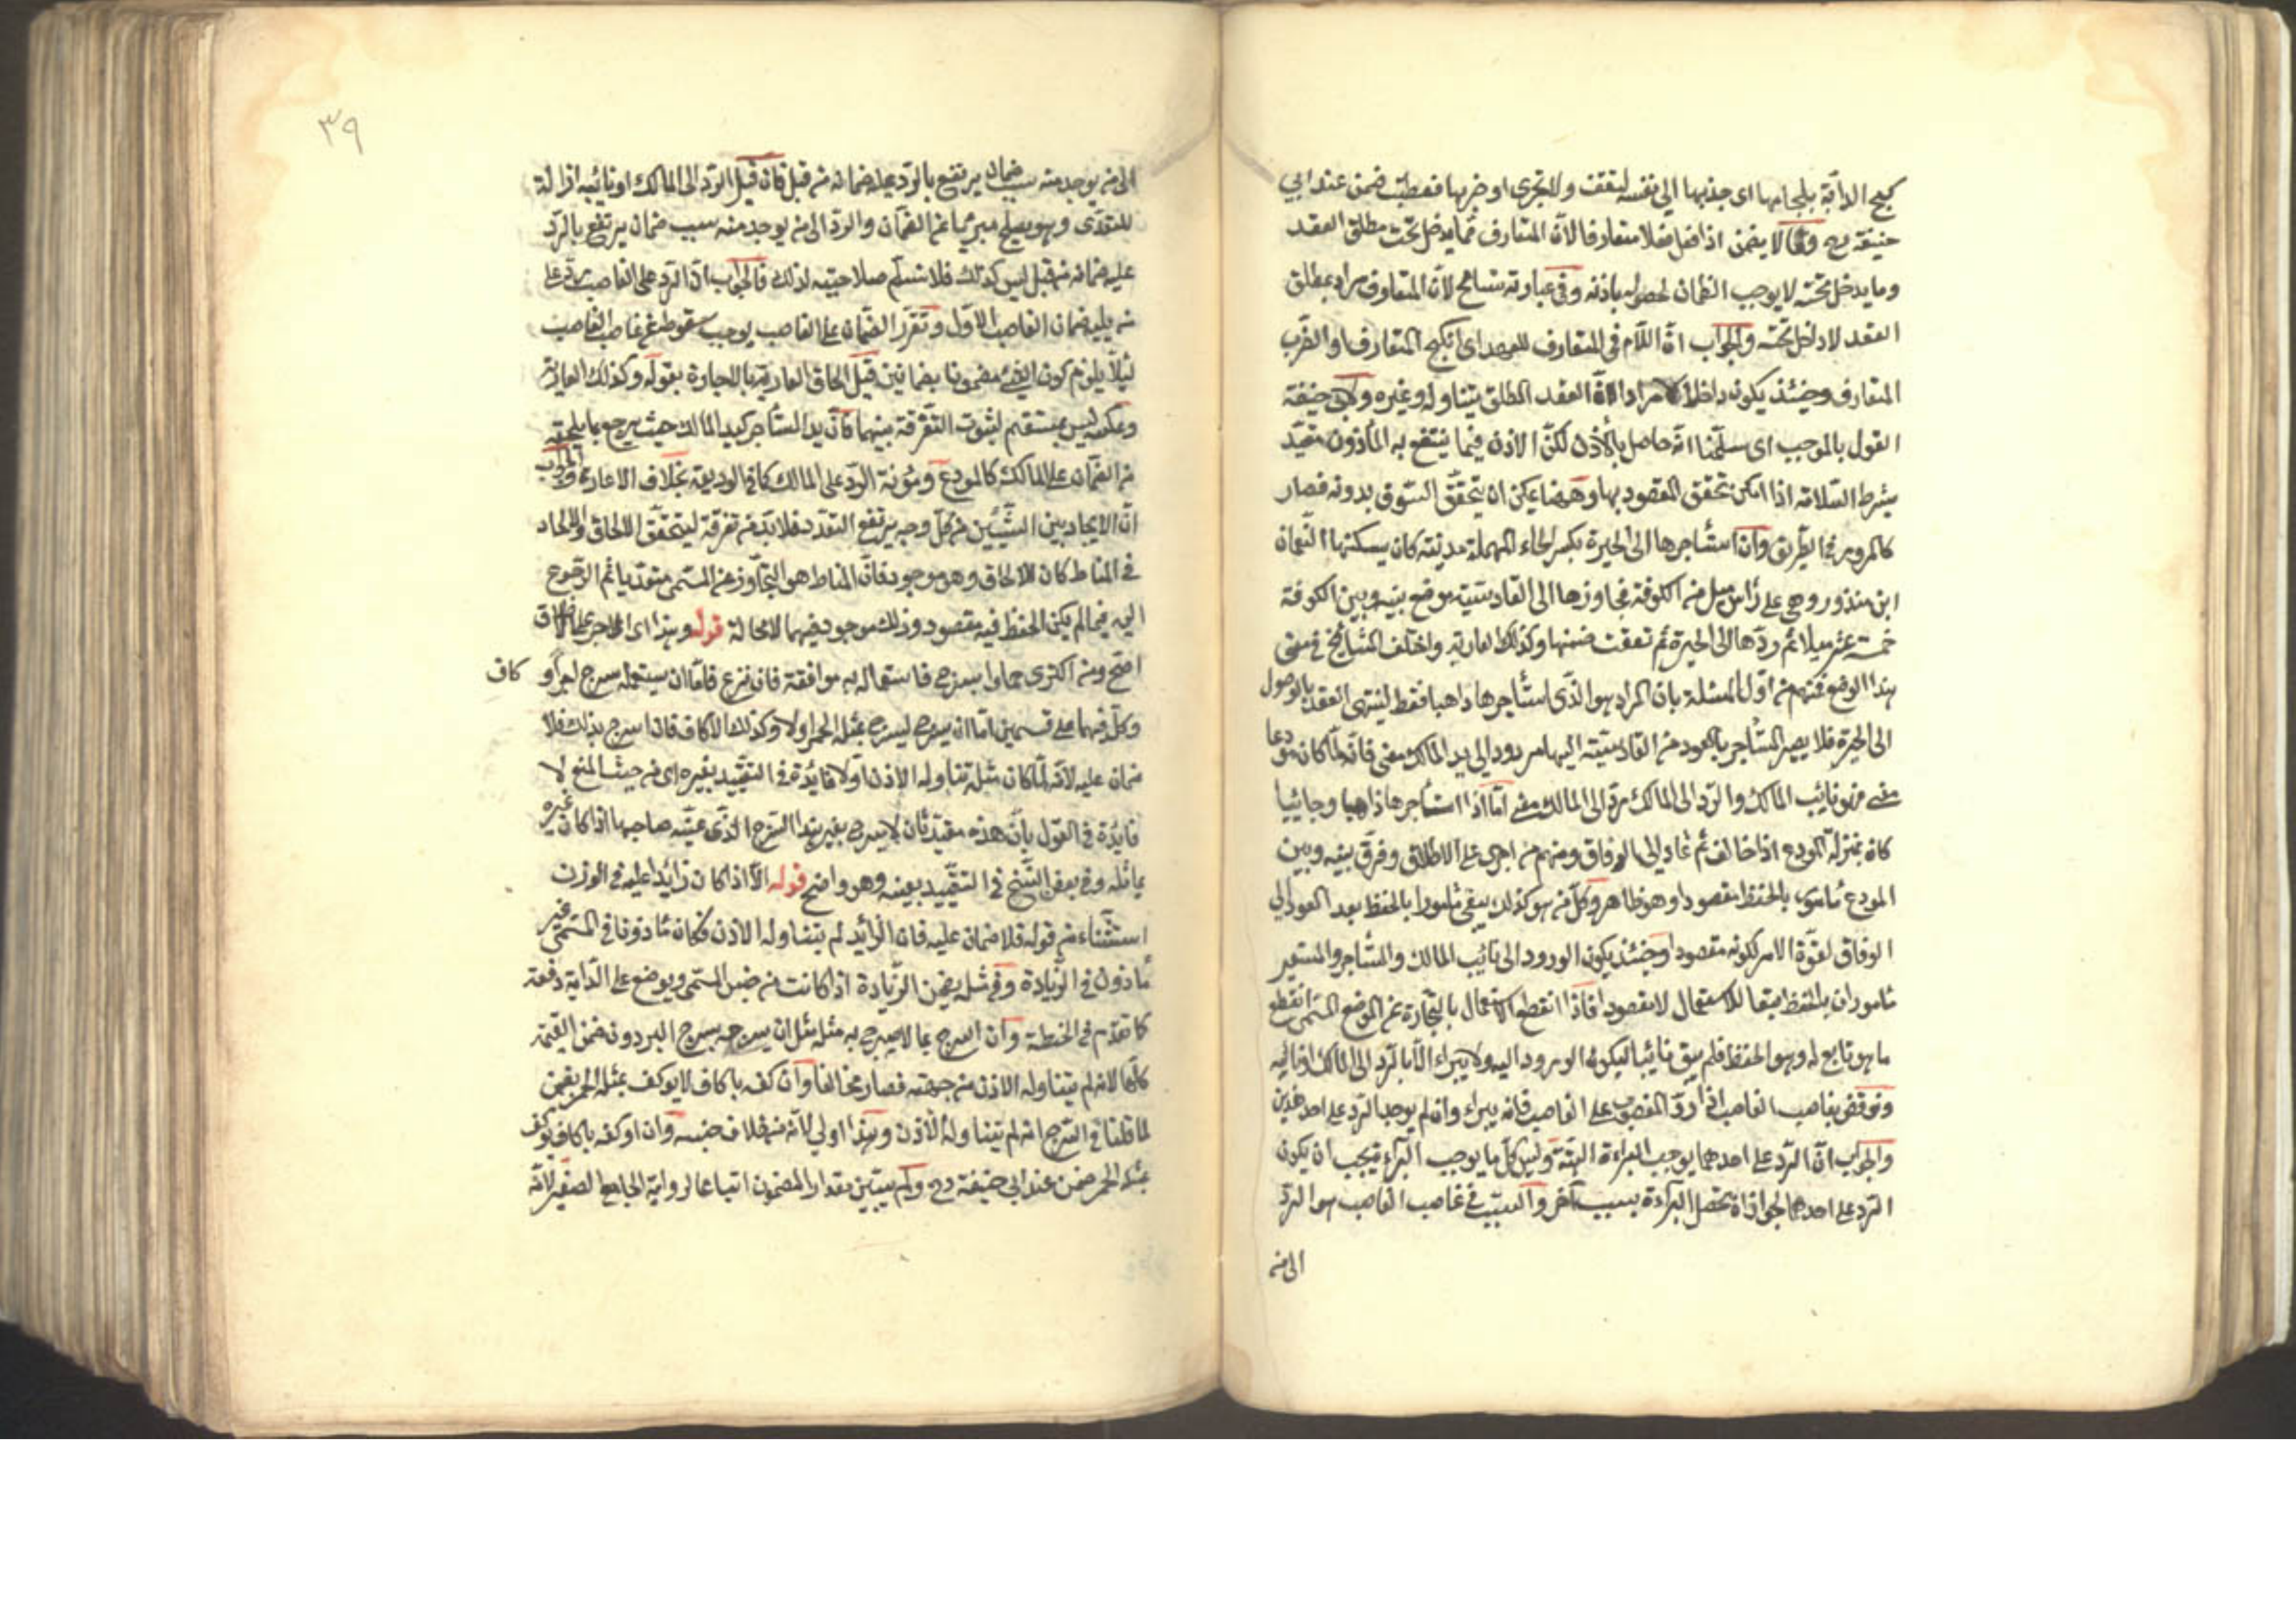 كبح الدابة بلجامها اى جذبها الى نفسه لتقف ولا تجرى او ضربها فعطبت ضمن عند ابى
حنيفة رح وقالا لا يضمن اذا فعل فعلا متعارفا لان المتعارف مما يدخل تحت مطلق العقد
وما يدخل تحته لا يوجب الضمان لحصوله باذنه وفى عبارته تسامح لان المتعارف مراد بمطلق
العقد لا داخل تحته والجواب ان اللام فى المتعارف للعهد اى الكبح المتعارف او الضرب
المتعارف وحينئذ يكون داخلا لا مرادا لان العقد المطلق يتناوله وغيره ولابى حنيفة
القول بالموجب اى سلمنا انه حاصل بالاذن لكن الاذن فيما ينتفع به المأذون مقيد
بشرط السلامة اذا امكن تحقق المقصود بها وههنا يمكن ان يتحقق السوق بدونه فصار
كالمرور فى الطريق وان استأجرها الى الحيرة بكسر الحاء المهملة مدينة كان يسكنها النعمان
ابن منذر وهى على رأس ميل من الكوفة فجاوزها الى القادسية موضع بينه وبين الكوفة
خمسة عشر ميلا ثم ردها الى الحيرة ثم نفقت ضمنها وكذلك العارية واختلف المشايخ فى معنى
هذا الوضع فمنهم من اول المسئلة بان المراد هو الذى استأجرها ذاهبا فقط لينتهى العقد بالوصول
الى الحيرة فلا يصير المستأجر بالعود من القادسية اليها مردودا الى يد المالك معنى فانه لما كان مودعا
معنى فهو نائب المالك والرد الى المالك معنى اما اذا استأجرها ذاهبا وجائيا
كان بمنزلة المودع اذا خالف ثم عاد الى الوفاق ومنهم من اجرى على الاطلاق وفرق بينه وبين
المودع مأمور بالحفظ مقصودا وهو ظاهر وكل من هو كذلك يبقى مأمورا بالحفظ بعد العود الى
الوفاق لقوة الامر لكونه مقصودا وحينئذ يكون الورود الى نائب المالك والمستأجر والمستعير
مأموران بالحفظ تبعا للاستعمال لا مقصودا فاذا انقطع الاستعمال بالتجاوز عن الموضع المسمى انقطع
ما هو تابع له وهو الحفظ فلم يبق نائبا ليكون الورود اليه ولا يبراء الا بالرد الى المالك او نائبه
ونوقض بغاصب الغاصب اذا رد المغصوب على الغاصب فانه يبراء وان لم يوجد الرد على احد هذين
والجواب ان الرد على احدهما يوجب البراءة البتة وليس كل ما يوجب البراءة يجب ان يكون
الرد على احدهما لجواز ان تحصل البراءة بسبب آخر والسبب فى غاصب الغاصب هو الرد
الى من
٣٩
الى من يوجد منه سبب ضمان يرتفع بالرد عليه ضمانه من قبل فان قيل الرد الى المالك او نائبه ازالة
للتعدى وهو يصلح مبرئا عن الضمان والرد الى من يوجد منه سبب ضمان يرتفع بالرد
عليه ضمانه من قبل ليس كذلك فلا نسلم صلاحيته لذلك فالجواب ان الرد على الغاصب
ضمان الغاصب الاول وتقرر الضمان على الغاصب يوجب سقوطه عن غاصب الغاصب
لئلا يلزم كون الشئ مضمونا بضمانين قيل الحاق العارية بالاجارة بقوله وكذلك العارية
وعكسه ليس بمستقيم لثبوت التفرقة بينهما فان يد المستأجر كيد المالك حيث يرجع بما يلحقه
من الضمان على المالك كالمودع ومؤنة الرد على المالك كما فى الوديعة بخلاف الاعارة والجواب
ان الاتحاد بين الشيئين من كل وجه يرفع التعدد فلا بد من تفرقة ليتحقق الالحاق والاتحاد
فى المناط كان للالحاق وهو موجود فان المناط هو التجاوز عن المسمى متعديا ثم الرجوع
اليه فيما لم يكن الحفظ فيه مقصودا وذلك موجود فيهما لا محالة قوله وهذا اى الاجراء على الاطلاق
اصح ومن اكترى حمارا بسرج فاستعماله به موافقة فان نزع فاما ان يستعمله بسرج آخر او
كاف
وكل منهما على قسمين اما ان يسرج بسرج يسرج بمثله الحمر اولا وكذلك الاكاف فاذا اسرج بذلك فلا
ضمان عليه لانه لما كان مثله تناوله الاذن اولا فائدة فى التقييد بغيره اى من حيث المنع لا
فائدة فى القول بان هذه مقيد بان لا يسرج بغير هذا السرج الذى عينه صاحبها اذا كان غيره
يماثله وفى بعض النسخ فى التقييد بعينه وهو واضح قوله الا اذا كان زائدا عليه فى الوزن
استثناء من قوله فلا ضمان عليه فان الزائد لم يتناوله الاذن فكان مأذونا فى المسمى غير
مأذون فى الزيادة وفى مثله يضمن الزيادة اذا كانت من جنس المسمى ويوضع على الدابة دفعة
كما تقدم فى الحنطة وان اسرج بما لا يسرج به مثله مثل ان يسرجه بسرج البرذون ضمن القيمة
كلها لانه لم يتناوله الاذن من جهته فصار مخالفا وان اكفه باكاف لا يوكف بمثله الحمر يضمن
لما قلنا فى السرج انه لم يتناوله الاذن وهذا اولى لانه من خلاف جنسه وان اوكفه باكاف يوكف
بمثله الحمر ضمن عند ابى حنيفة رح ولم يتبين مقدار المضمون اتباعا لرواية الجامع الصغير لانه